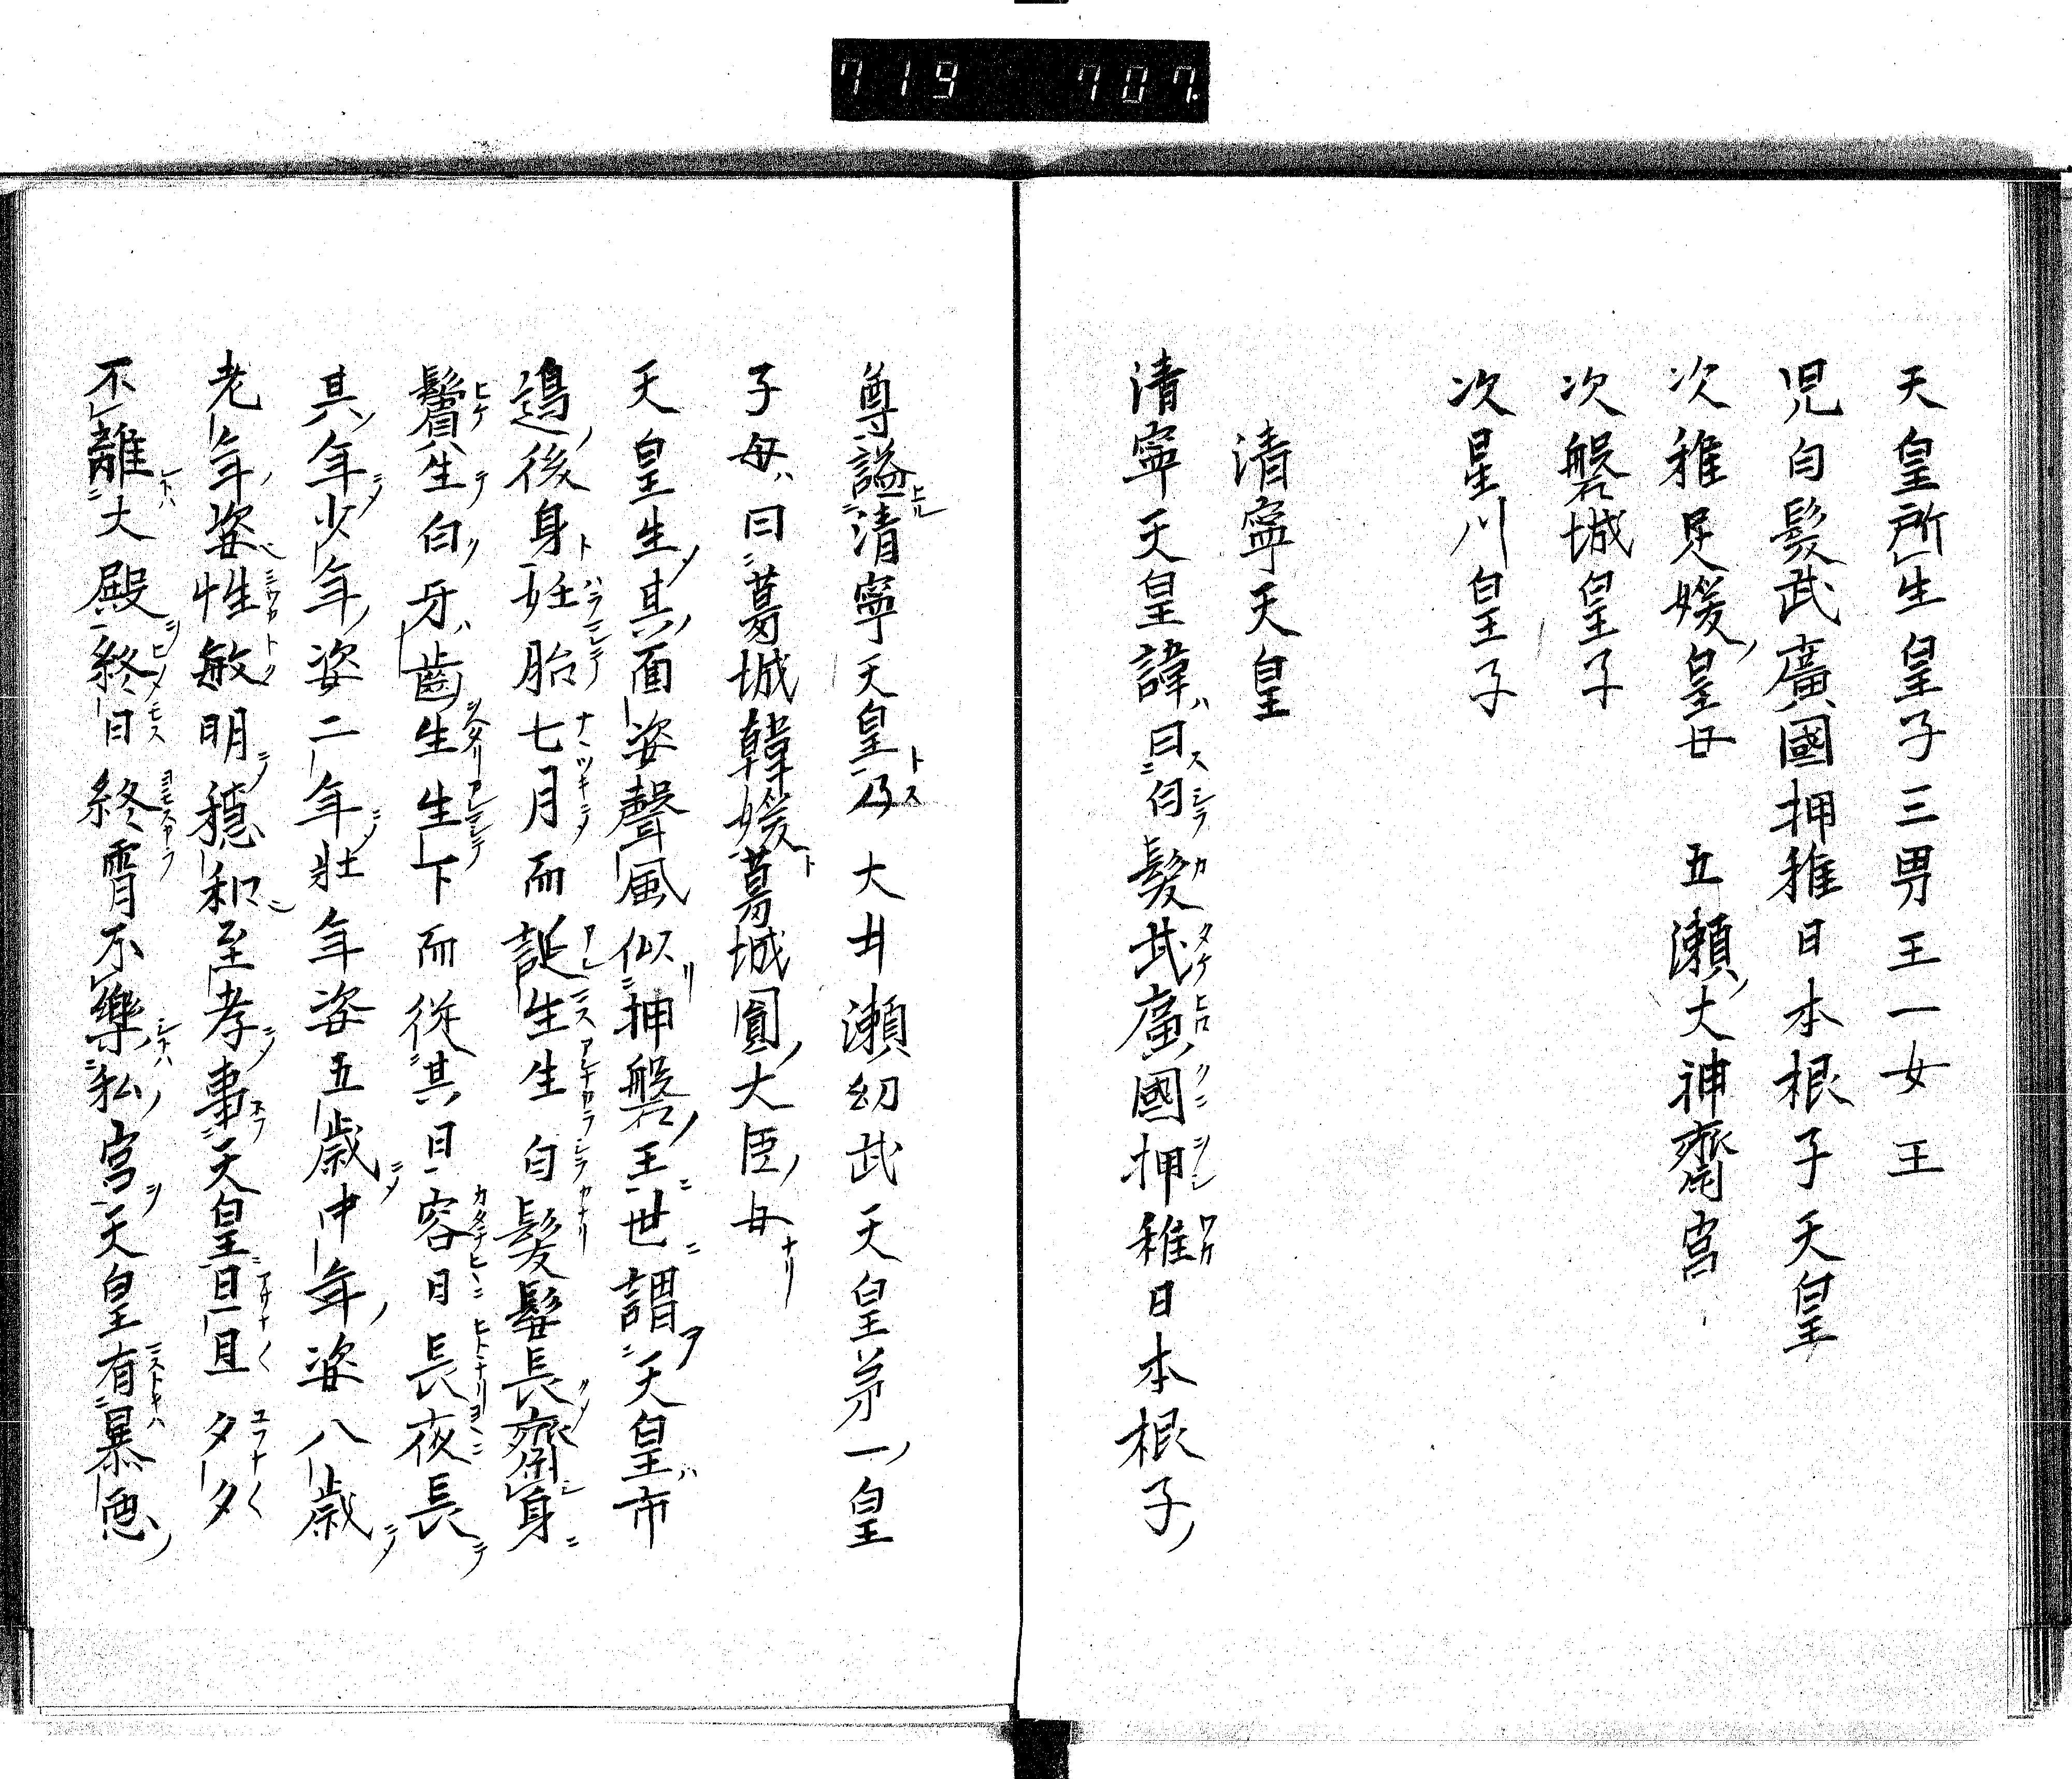 719 707.
天皇所生皇子三男王一女王
児白髪武廣國押稚日本根子天皇
次稚足媛皇女 五瀬大神齋宮
次磐城皇子
次星川皇子
清寧天皇
清寧天皇諱曰白髪武廣國押稚日本根子
尊謚清寧天皇乃大井瀬幼武天皇苐一皇
子母曰葛城韓媛葛城圓大臣女
天皇生其面姿聲風似押磐王世謂天皇市
邉後身妊胎七月而誕生生白髪髪長齋身
鬚生白牙齒生生下而從其日容日長夜長
其年少年姿二年壯年姿五歳中年姿八歳
老年姿性敏明穏和至孝事天皇旦旦夕夕
不離大殿終日終霄不樂私宮天皇有暴悪